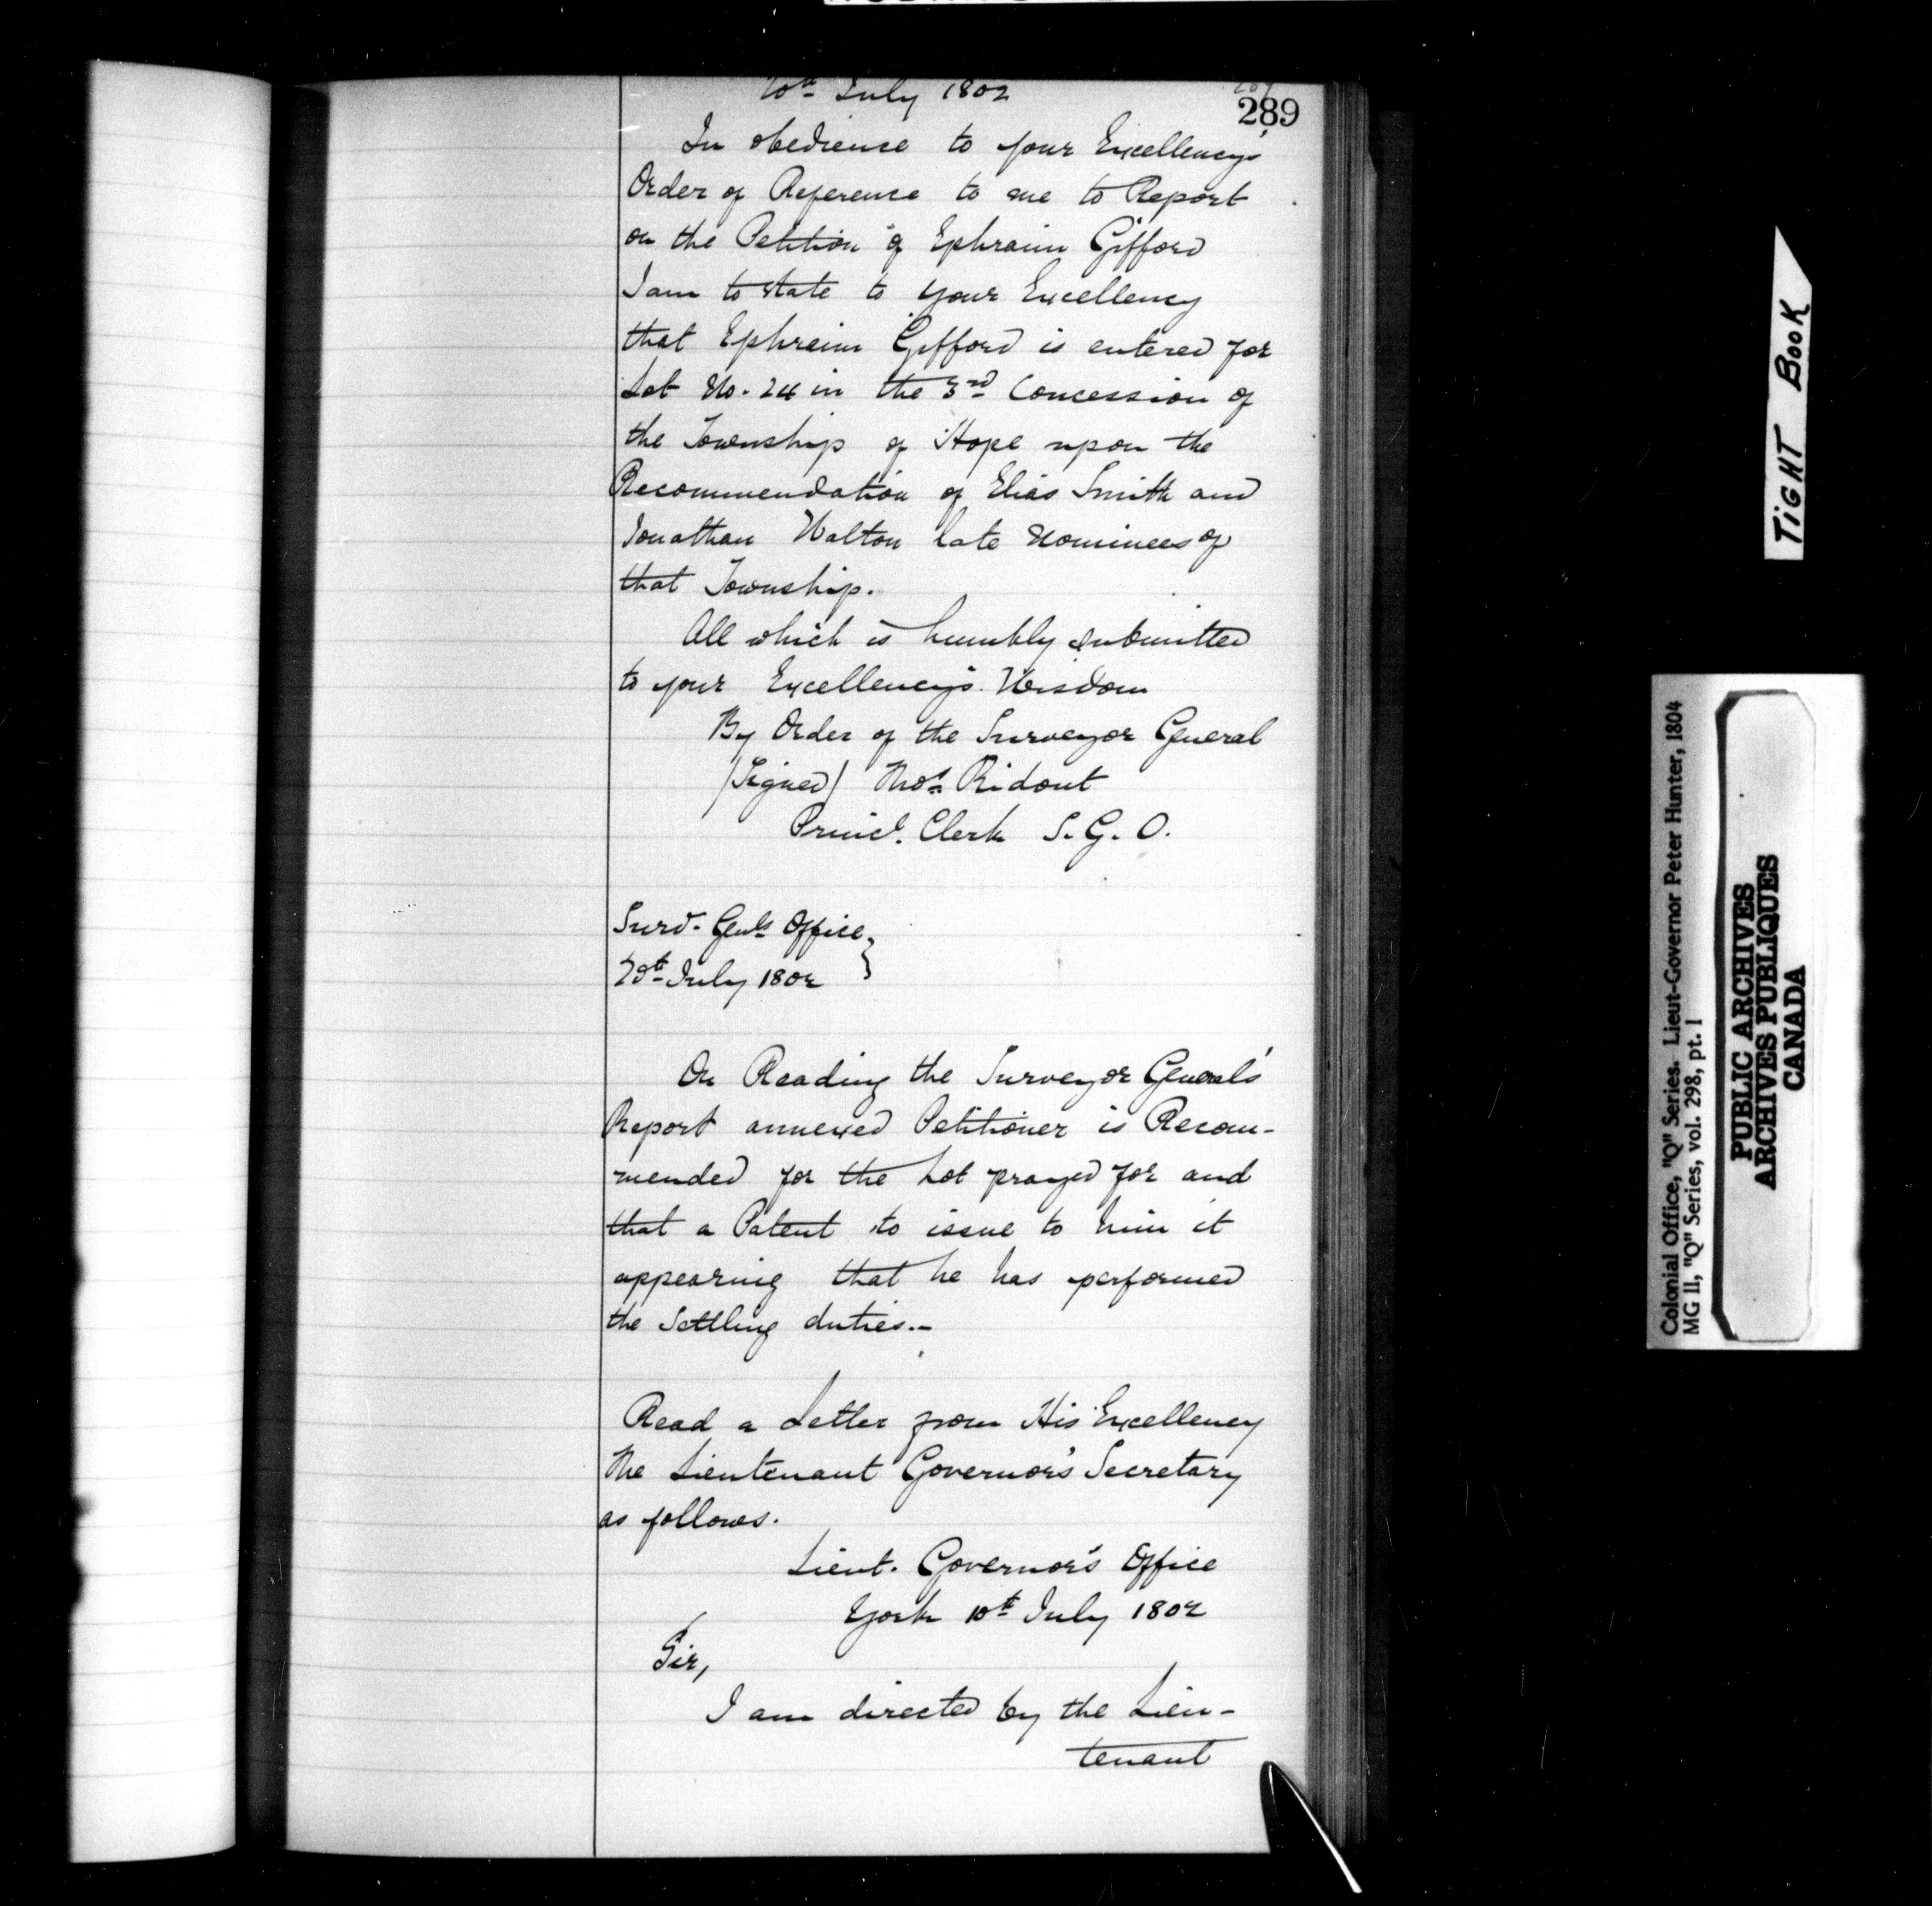 10th July 1802
289
In obedience to your Excellency's
Order of Reference to me to Report
on the Petition of Ephraim Gifford
I am to state to your Excellency
that Ephraim Gifford is entered for
Lot No. 24 in the 3rd Concession of
the Township of Hope upon the
Recommendation of Elias Smith and
Jonathan Walton late Nominees of
that Township.
All which is humbly submitted
to your Excellency's Wisdom
By Order of the Surveyor General
(Signed) Thos. Ridout
Princl. Clerk S. G. O.
Survr. Genls Office
July 1802
On Reading the Surveyor General's
Report annexed Petitioner is Recom-
mended for the Lot prayed for and
that a Patent to issue to him it
appearing that he has performed
the Settling duties.-
Read a Letter from His Excellency
The Lieutenant Governor's Secretary
as follows.
Lieut. Governor's Office
York 10th July 1802
Sir,
I am directed by the Lieu-
tenant
TIGHT BOOK
Colonial Office, "Q" Series. Lieut-Governor Peter Hunter, 1804
MG 11, "Q" Series, vol. 298, pt. 1
PUBLIC ARCHIVES
ARCHIVES PUBLIQUES
CANADA